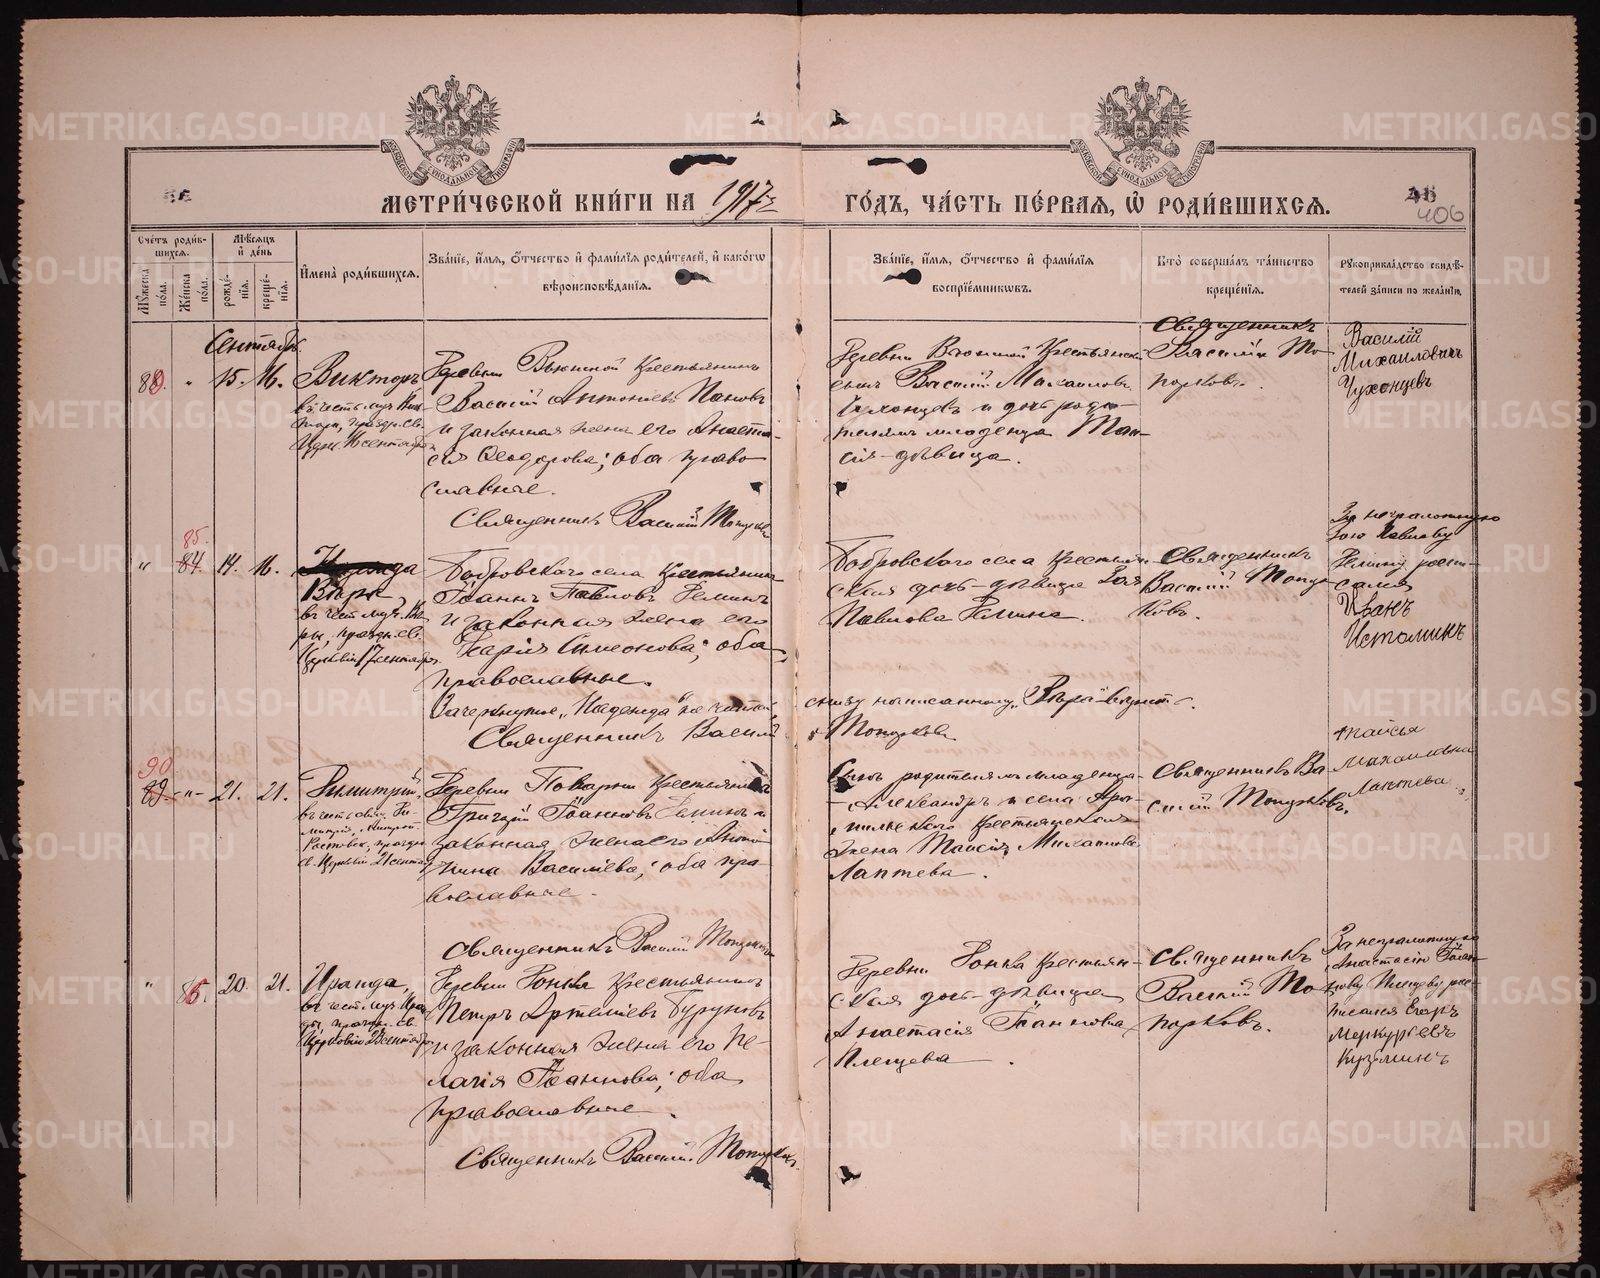 МЕТРИЧЕСКОЙ КНИГИ НА 1917 ГОДЪ, ЧАСТЬ ПЕРВАЯ, Ѡ РОДИВШИХСЯ.
46
406
Счетъ родив-
шихся.
Мужеска пола.
Женска пола.
Мѣсяцъ
и день
рожденія.
крещенія.
Имена родившихся.
Званіе, имя, отчество и фамилія родителей, и какогѡ
вѣроисповѣданія.
Званіе, имя, отчество и фамилія
воспріемниковъ.
Кто совершалъ таинство
крещенія.
Рукоприкладство свидѣ-
телей записи по желанію.
Сентябрь
88. " 15. 16.
Викторъ
Деревни Вьюшной крестьянинъ
Василій Антоніевъ Пановъ
и законная жена его Анаста-
сія Ѳеодорова; оба право-
славные.
Священникъ Василій Топорковъ
Деревни Вьюшной крестьянскій
сынъ Василій Михаиловъ
Чухонцевъ и дочь роди-
телямъ младенца Таи-
сія-дѣвица.
Священникъ
Василій То-
порковъ.
Василій
Михаиловичъ
Чухонцевъ
85.
" 84. 14. 16.
Надежда
Вѣра,
въ честь муч. Вѣ-
ры, праздн. Св.
Церковію 17 сентября
Бобровскаго села крестьянинъ
Іоаннъ Павловъ Деминъ
и законная жена его
Марія Симеонова; оба
православные.
Зачеркнутое „Надежда" не читай,
снизу написанному „Вѣра" вѣрить.
Священникъ Василій Топорковъ
Бобровскаго села крестьян-
ская дочь-дѣвица Зоя
Павлова Демина.
Священникъ
Василій Топор-
ковъ.
За неграмотную
Зою Павлову
Демину роспи-
сался
Иванъ
Истоминъ
90
89. -"- 21. 21.
Димитрій,
Ростовск., праздн.
св. Церковію 21 сентяб.
Деревни Поварни крестьянинъ
Григорій Іоанновъ Деминъ и
законная жена его Анто-
нина Василіева; оба пра-
вославные.
Священникъ Василій Топорковъ
Сынъ родителямъ младенца
Александръ и села Ара-
мильскаго крестьянская
жена Таисія Михаилова
Лаптева.
Священникъ Ва-
силій Топорковъ.
Таисья
Махаиловна
Лаптева
" 86. 20. 21.
Ираида,
въ честь муч. Ираи-
ды, праздн. св.
Церковію 23 сентября
Деревни Фомка крестьянинъ
Петръ Артеміевъ Буруновъ
и законная жена его Пе-
лагія Іоаннова; оба
православные.
Священникъ Василій Топорковъ.
Деревни Фомка крестьян-
ская дочь-дѣвица
Анастасія Іоаннова
Плещева.
Священникъ
Василій То-
порковъ.
За неграмотную
Анастасію Іоан-
нову Плещеву рос-
писался Егоръ
Меркурьевъ
Кузьминъ
METRIKI.GASO-URAL.RU